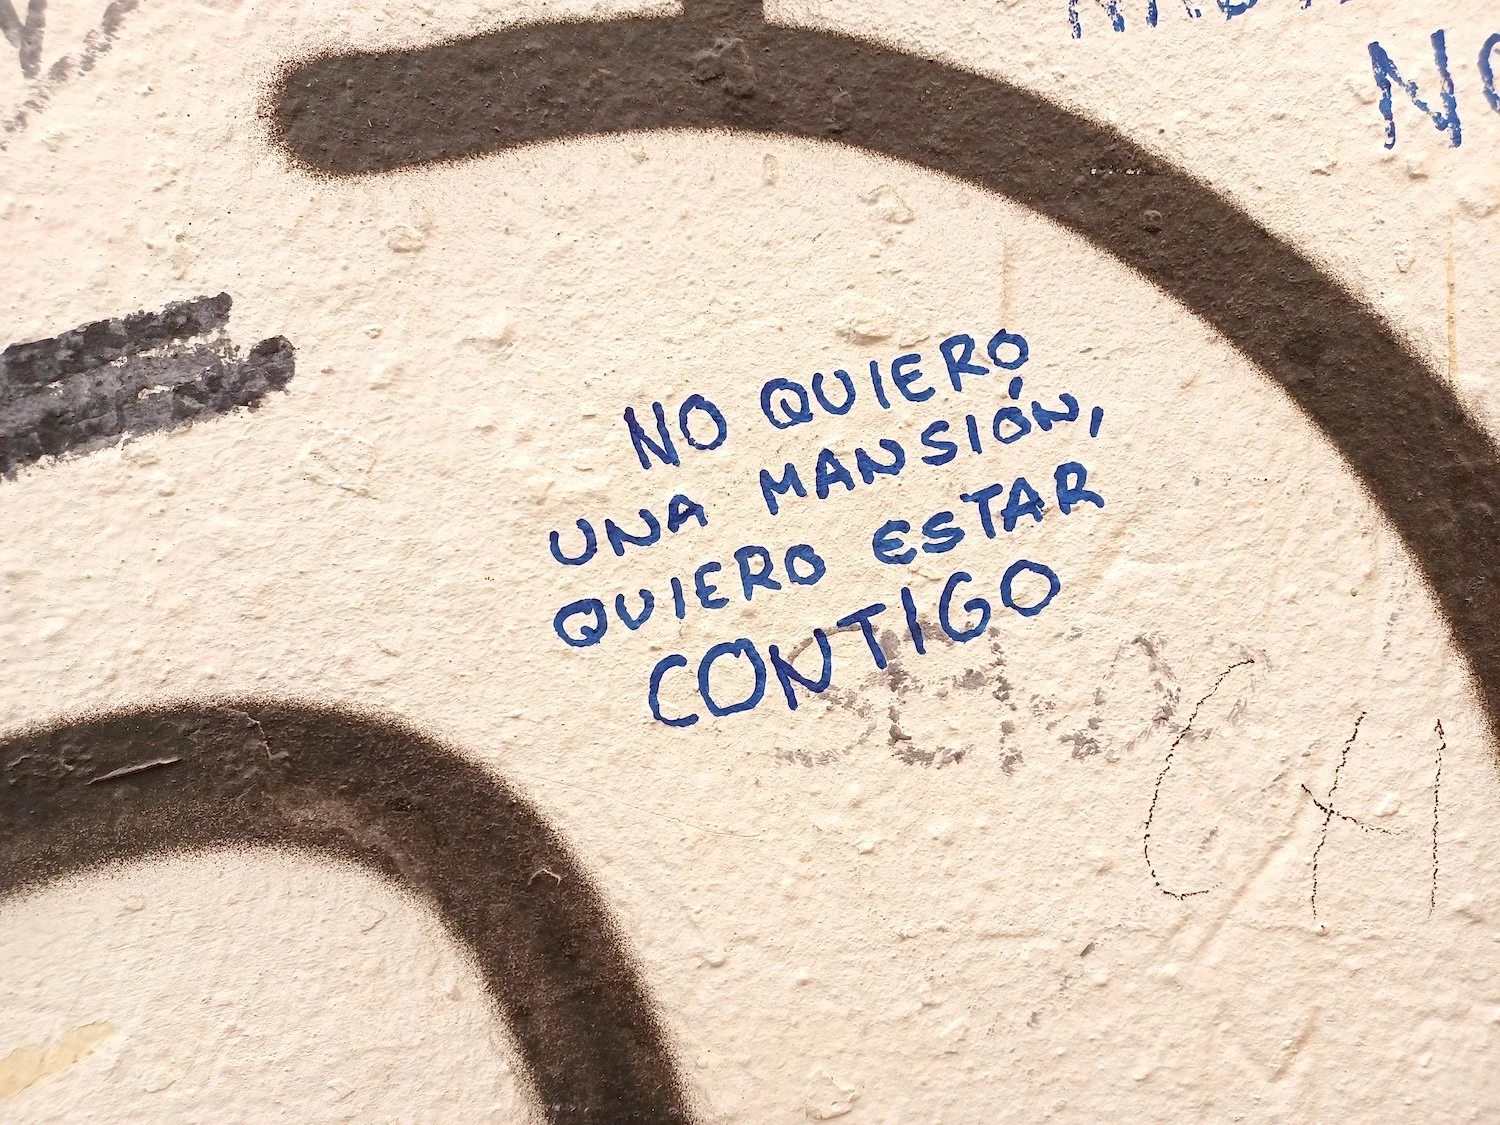 NO
NO QUIERO
UNA MANSIÓN,
QUIERO ESTAR
CONTIGO